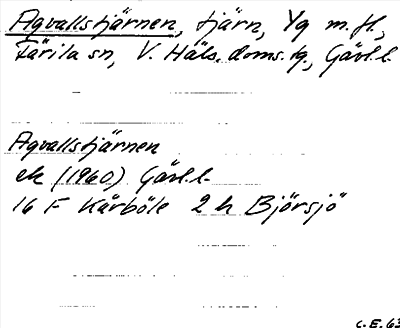 Agvallstjärnen, tjärn, Yg m.fl.,
Färila sn, V. Häls. doms.tg, Gävl.l.
Agvallstjärnen
ek (1960) Gävl.l.
16 F Kårböle 2 h Björsjö
C.E. 63